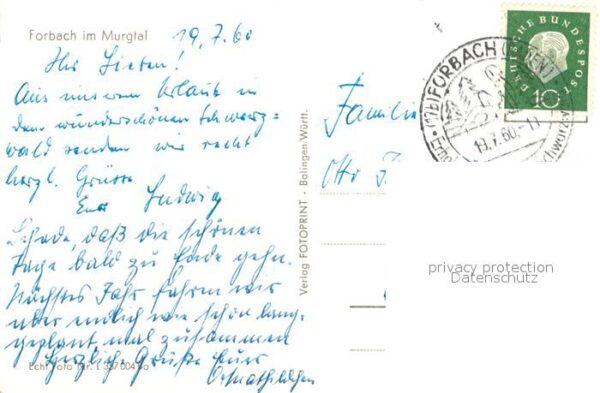 Forbach im Murgtal
19.7.60
Ihr Lieben!
Aus unserem Urlaub in
dem wunderschönen Schwarz=
wald senden wir recht
herzl. Grüsse
Euer Ludwig
Schade, daß die schönen
Tage bald zu Ende gehn.
Nächstes Jahr fahren wir
aber endlich wie schon lang
geplant mal zusammen
Herzliche Grüße Euer
Echt Foto Nr.
Verlag FOTOPRINT - Balingen/Württ.
Familie
Otto
FORBACH
19.7.60.-11
DEUTSCHE BUNDESPOST
10
privacy protection
Datenschutz